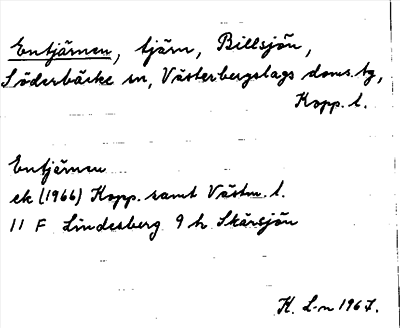 Entjärnen, tjärn, Billsjön,
Söderbärke sn, Västerbergslags doms.tg,
Kopp. l.
Entjärnen
ek (1966) Kopp. samt Västm. l.
11 F Lindesberg 9 h Skärsjön
K. L-n 1967.